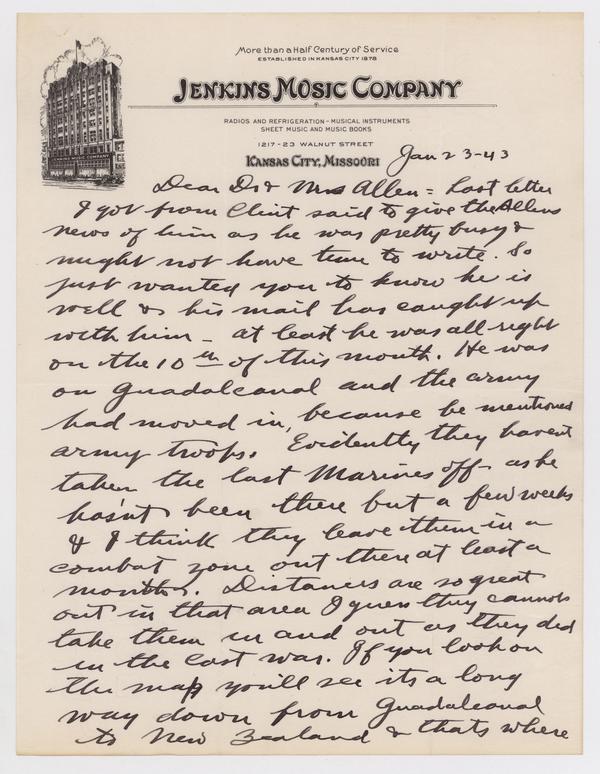 More than a Half Century of Service
ESTABLISHED IN KANSAS CITY 1878
JENKINS MUSIC COMPANY
RADIOS AND REFRIGERATION - MUSICAL INSTRUMENTS
SHEET MUSIC AND MUSIC BOOKS
1217-23 WALNUT STREET
KANSAS CITY, MISSOURI
JENKINS MUSIC COMPANY
Jan 23-43
Dear Dr & Mrs Allen = Last letter
I got from Clint said to give the Allens
news of him as he was pretty busy &
might not have time to write. So
just wanted you to know he is
well & his mail has caught up
with him - at least he was all right
on the 10th of this month. He was
on Guadalcanal and the army
had moved in, because he mentioned
army troops. Evidently they havent
taken the last Marines off - as he
hasn't been there but a few weeks
& I think they leave them in a
combat zone out there at least a
month. Distances are so great
out in that area I guess they cannot
take them in and out as they did
in the last war. If you look on
the map you'll see its a long
way down from Guadalcanal
to New Zealand & thats where